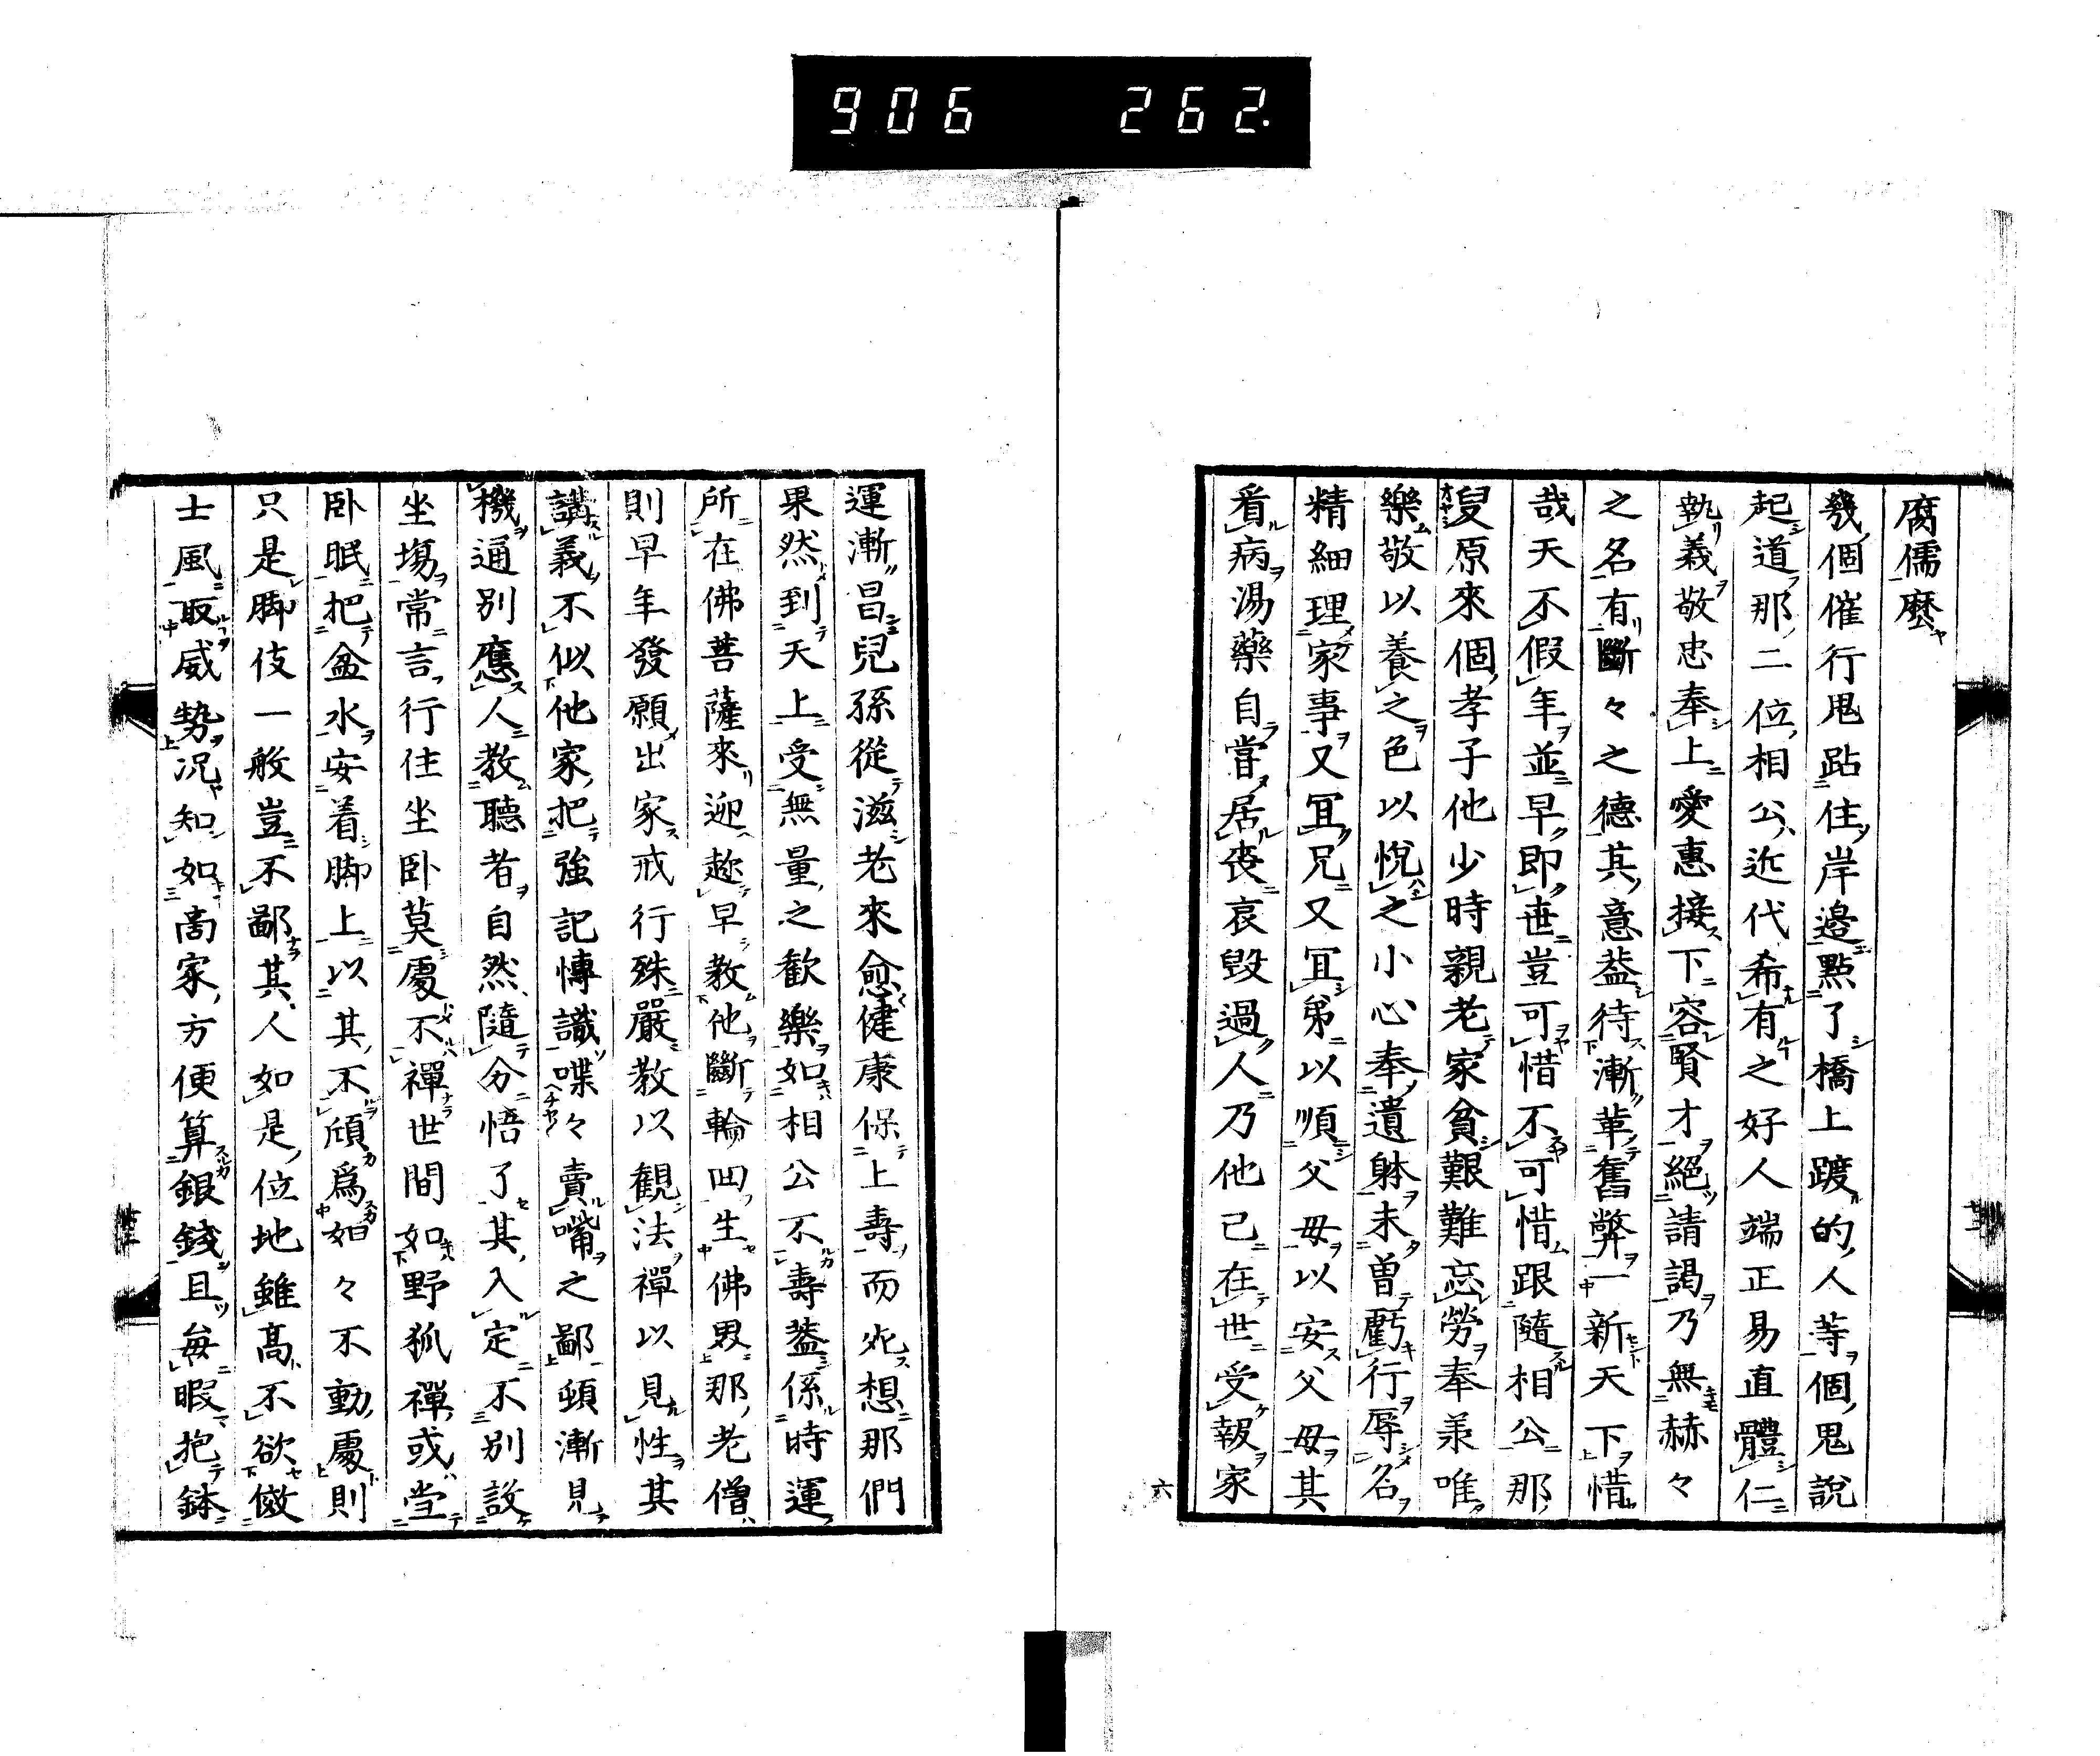 906 262.
腐儒麼
幾個催行鬼跕住岸邊點了橋上踱的人等個鬼說
起道那二位相公近代希有之好人端正易直體仁
執義敬忠奉上愛惠接下容賢才絕請謁乃無赫々
之名有斷々之德其意蓋待漸革舊弊一新天下惜
哉天不假年並早即世豈可惜不可惜跟隨相公那
叟原來個孝子他少時親老家貧艱難忘勞奉羕唯
樂敬以養之色以悅之小心奉遺躰未曽虧行辱名
精細理家事又冝兄又冝弟以順父毋以安父毋其
看病湯藥自嘗居喪哀毀過人乃他己在世受報家
運漸昌兒孫從滋老來愈健康保上壽而死想那們
果然到天上受無量之歡樂如相公不壽蓋係時運
所在佛菩薩來迎趂早教他斷輪回生佛界那老僧
則早年發願出家戒行殊嚴教以觀法禪以見性其
講義不似他家把強記慱識喋々賣嘴之鄙頓漸見
機通別應人教聽者自然隨分悟了其入定不別設
坐塲常言行住坐卧莫處不禪世間如野狐禪或堂
卧眠把盆水安着脚上以其不頎爲如々不動處則
只是脚伎一般豈不鄙其人如是位地雖髙不欲傚
士風取威勢况知如髙家方便算銀錢且毎暇抱鉢
六